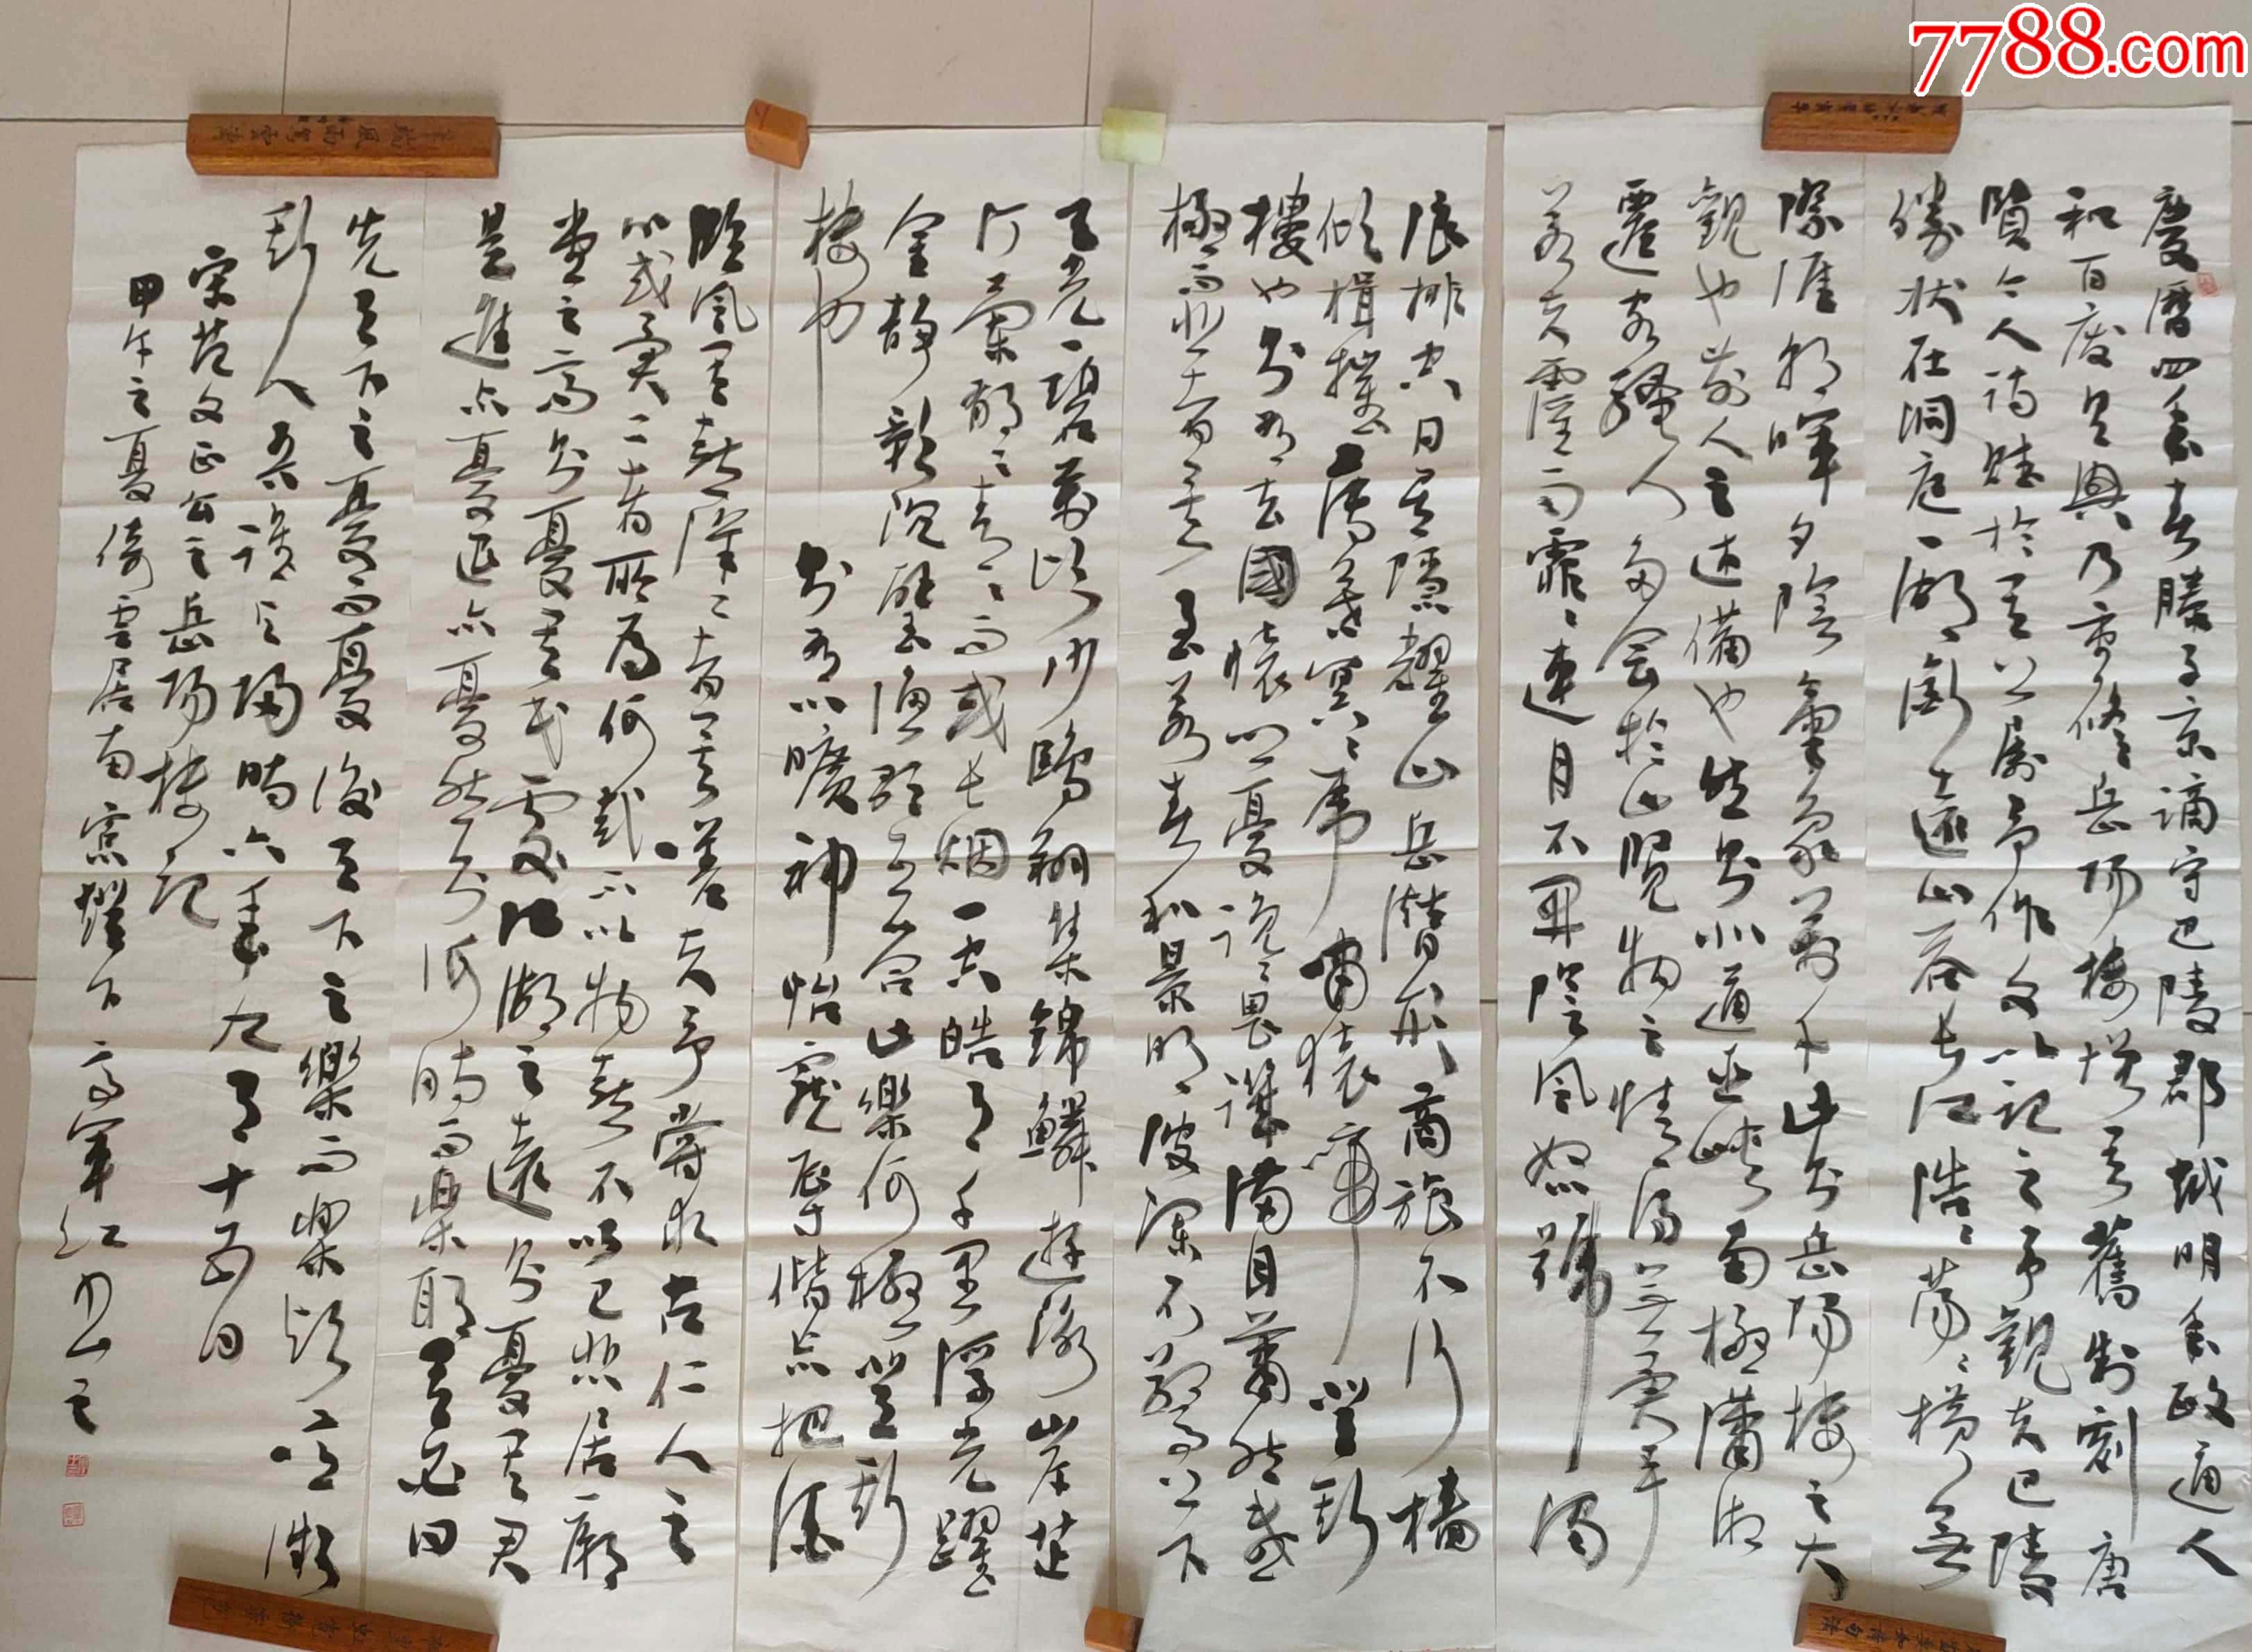 7788.com
慶曆四年春滕子京謫守巴陵郡越明年政通人
和百廢具興乃重修岳陽樓增其舊制刻唐
賢今人詩賦於其上屬予作文以記之予觀夫巴陵
勝狀在洞庭一湖銜遠山吞長江浩浩蕩蕩橫無
際涯朝暉夕陰氣象萬千此則岳陽樓之大
觀也前人之述備也然則北通巫峽南極瀟湘
遷客騷人多會於此覽物之情得無異乎
若夫霪雨霏霏連月不開陰風怒號濁
浪排空日星隱耀山岳潛形商旅不行檣
傾楫摧薄暮冥冥虎嘯猿啼登斯
樓也則有去國懷鄉憂讒畏譏滿目蕭然感
極而悲者矣至若春和景明波瀾不驚上下
天光一碧萬頃沙鷗翔集錦鱗游泳岸芷
汀蘭郁郁青青而或長烟一空皓月千里浮光躍
金靜影沉璧漁歌互答此樂何極登斯
樓也則有心曠神怡寵辱偕忘把酒
臨風其喜洋洋者矣嗟夫予嘗求古仁人之
心或異二者所為何哉不以物喜不以己悲居廟
堂之高則憂其民處江湖之遠則憂其君
是進亦憂退亦憂然則何時而樂耶其必曰
先天下之憂而憂後天下之樂而樂歟噫微
斯人吾誰與歸時六年九月十五日
宋范文正公之岳陽樓記
甲午之夏倚雲居南窗燈下高軍紅書之